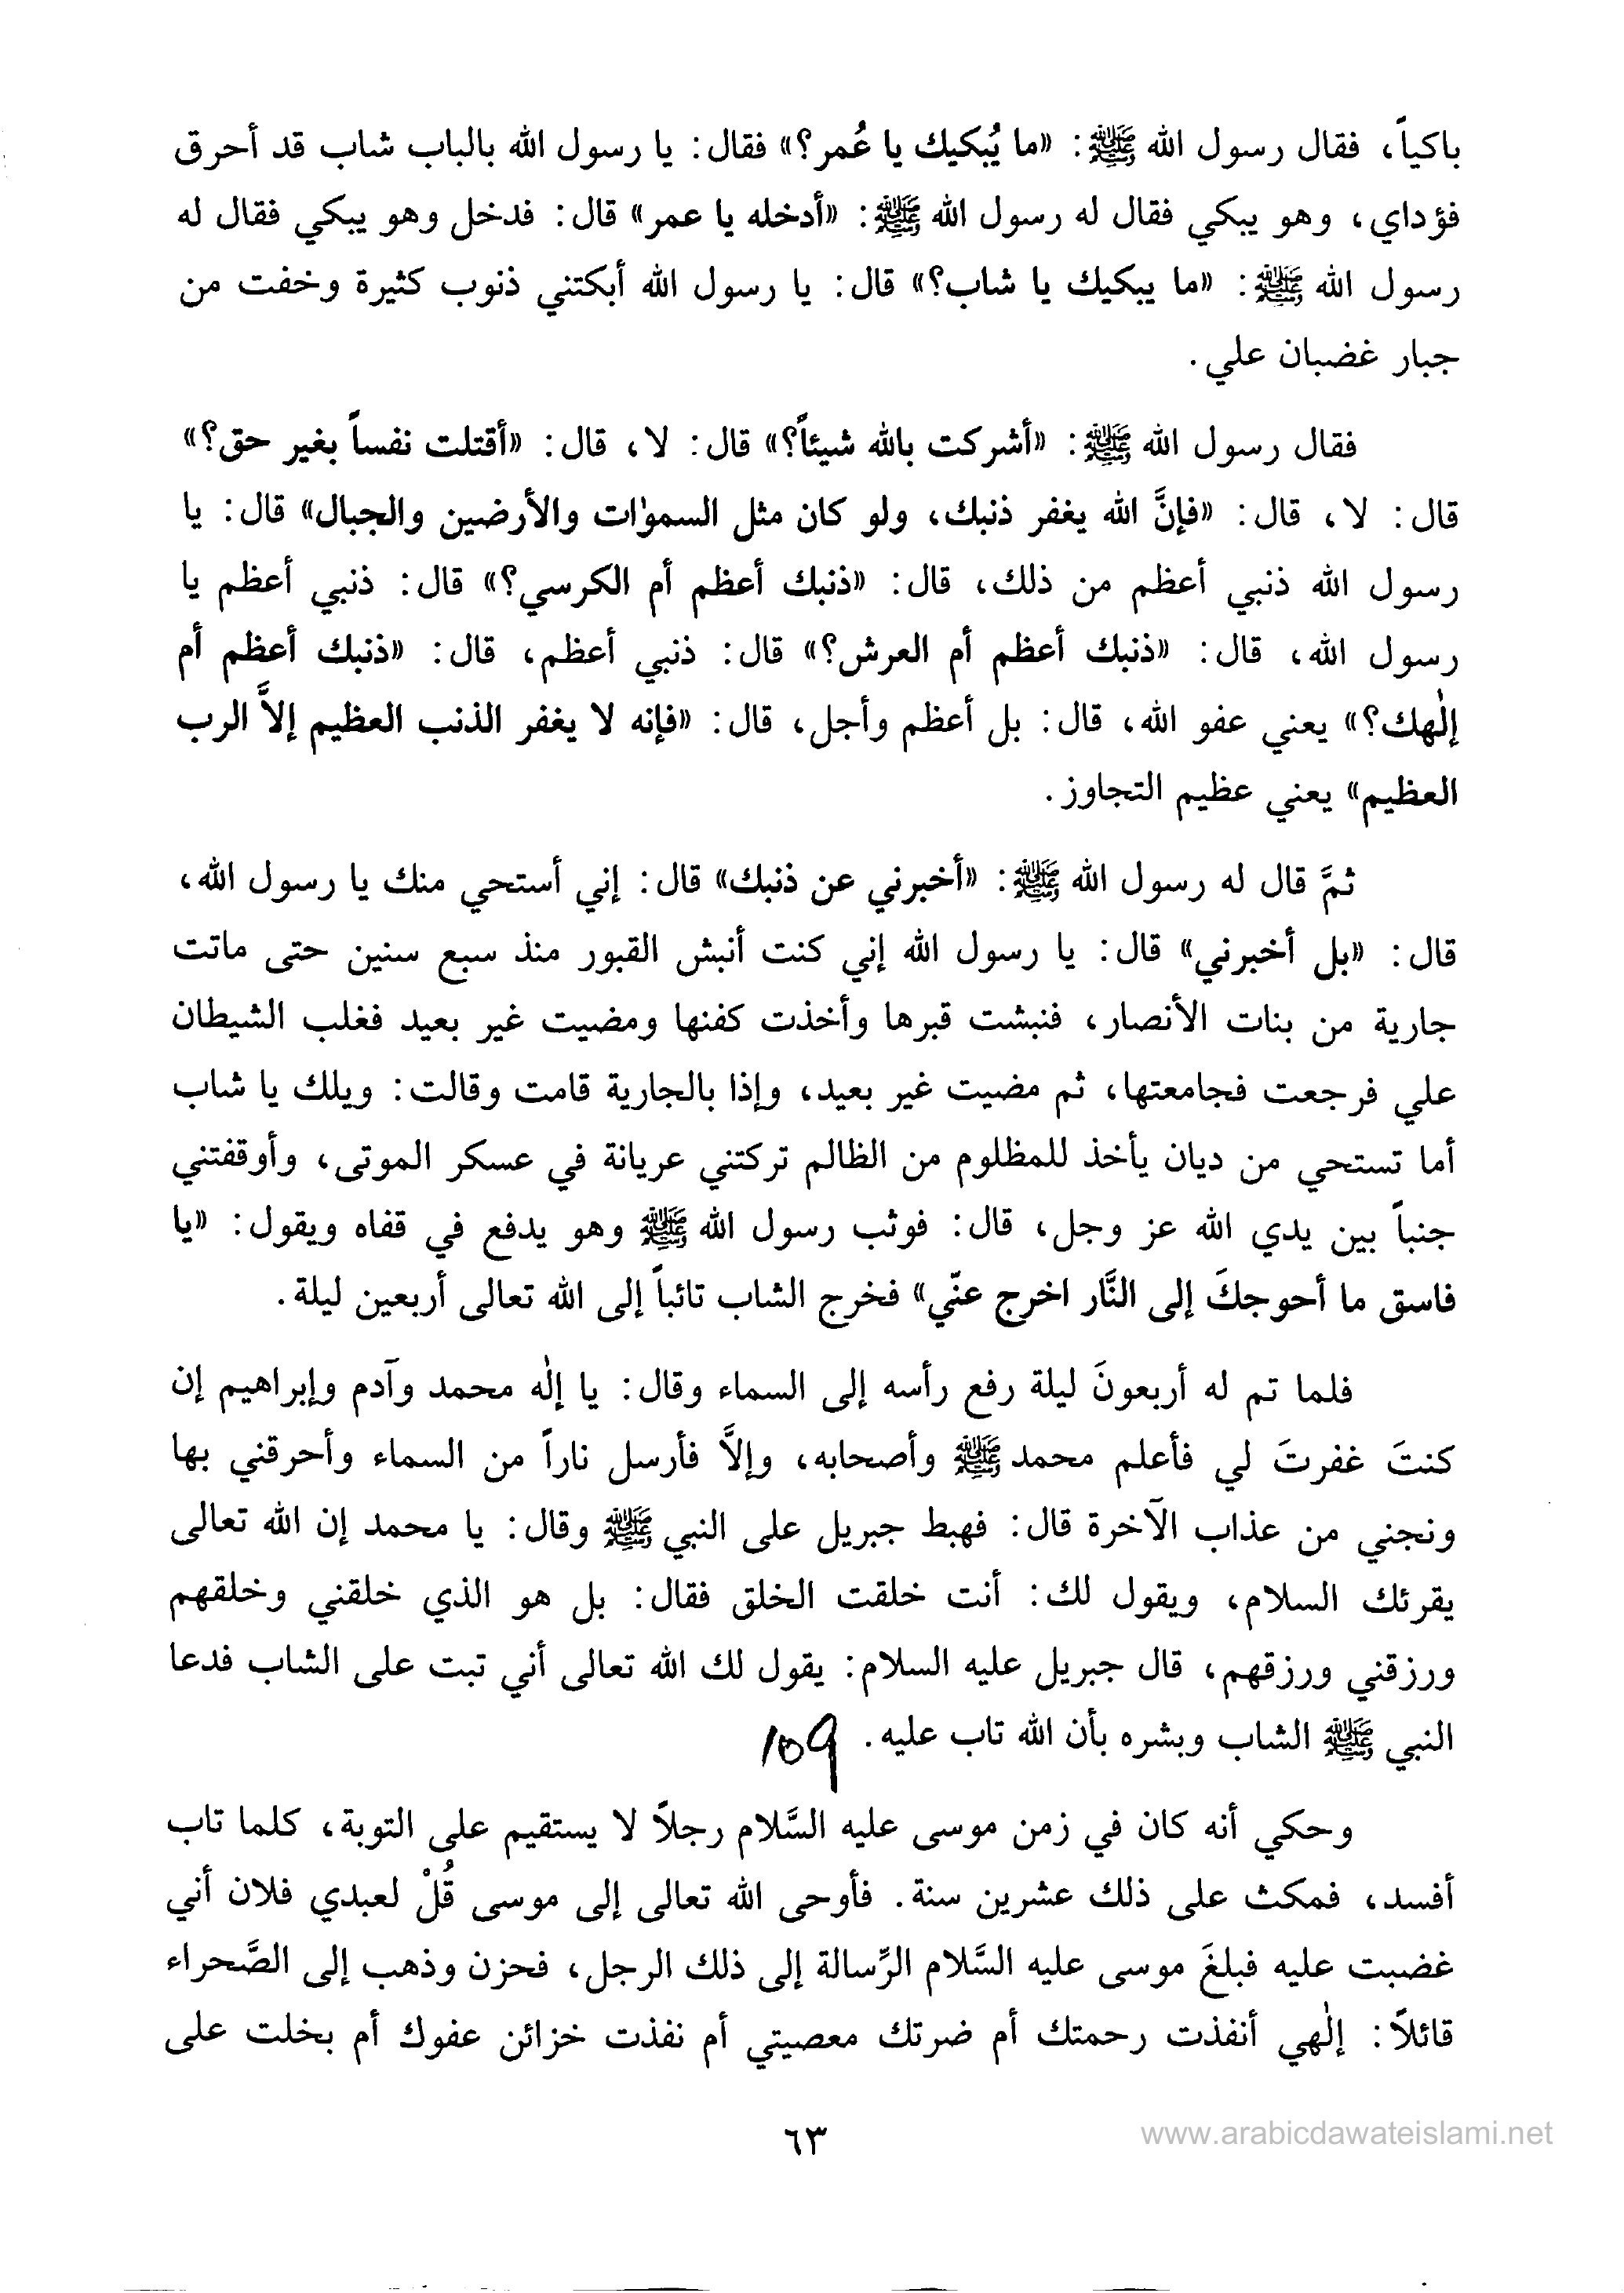 باكياً، فقال رسول الله ﷺ: «ما يُبكيك يا عُمر؟» فقال: يا رسول الله بالباب شاب قد أحرق
فؤداي، وهو يبكي فقال له رسول الله ﷺ: «أدخله يا عمر» قال: فدخل وهو يبكي فقال له
رسول الله ﷺ: «ما يبكيك يا شاب؟» قال: يا رسول الله أبكتني ذنوب كثيرة وخفت من
جبار غضبان علي.
فقال رسول الله ﷺ: «أشركت بالله شيئاً؟» قال: لا، قال: «أقتلت نفساً بغير حق؟»
قال: لا، قال: «فإنَّ الله يغفر ذنبك، ولو كان مثل السموٰات والأرضين والجبال» قال: يا
رسول الله ذنبي أعظم من ذلك، قال: «ذنبك أعظم أم الكرسي؟» قال: ذنبي أعظم يا
رسول الله، قال: «ذنبك أعظم أم العرش؟» قال: ذنبي أعظم، قال: «ذنبك أعظم أم
إلٰهك؟» يعني عفو الله، قال: بل أعظم وأجل، قال: «فإنه لا يغفر الذنب العظيم إلاَّ الرب
العظيم» يعني عظيم التجاوز.
ثمَّ قال له رسول الله ﷺ: «أخبرني عن ذنبك» قال: إني أستحي منك يا رسول الله،
قال: «بل أخبرني» قال: يا رسول الله إني كنت أنبش القبور منذ سبع سنين حتى ماتت
جارية من بنات الأنصار، فنبشت قبرها وأخذت كفنها ومضيت غير بعيد فغلب الشيطان
علي فرجعت فجامعتها، ثم مضيت غير بعيد، وإذا بالجارية قامت وقالت: ويلك يا شاب
أما تستحي من ديان يأخذ للمظلوم من الظالم تركتني عريانة في عسكر الموتى، وأوقفتني
جنباً بين يدي الله عز وجل، قال: فوثب رسول الله ﷺ وهو يدفع في قفاه ويقول: «يا
فاسق ما أحوجكَ إلى النَّار اخرج عنّي» فخرج الشاب تائباً إلى الله تعالى أربعين ليلة.
فلما تم له أربعونَ ليلة رفع رأسه إلى السماء وقال: يا إلٰه محمد وآدم وإبراهيم إن
كنتَ غفرتَ لي فأعلم محمد ﷺ وأصحابه، وإلاَّ فأرسل ناراً من السماء وأحرقني بها
ونجني من عذاب الآخرة قال: فهبط جبريل على النبي ﷺ وقال: يا محمد إن الله تعالى
يقرئك السلام، ويقول لك: أنت خلقت الخلق فقال: بل هو الذي خلقني وخلقهم
ورزقني ورزقهم، قال جبريل عليه السلام: يقول لك الله تعالى أني تبت على الشاب فدعا
النبي ﷺ الشاب وبشره بأن الله تاب عليه.
وحكي أنه كان في زمن موسى عليه السَّلام رجلاً لا يستقيم على التوبة، كلما تاب
أفسد، فمكث على ذلك عشرين سنة. فأوحى الله تعالى إلى موسى قُلْ لعبدي فلان أني
غضبت عليه فبلغَ موسى عليه السَّلام الرِّسالة إلى ذلك الرجل، فحزن وذهب إلى الصَّحراء
قائلاً: إلٰهي أنفذت رحمتك أم ضرتك معصيتي أم نفذت خزائن عفوك أم بخلت على
٦٣
www.arabicdawateislami.net